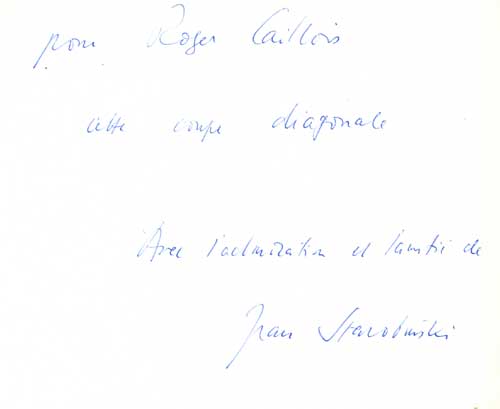 pour Roger Caillois
cette coupe diagonale
Avec l'admiration et l'amitié de
Jean Starobinski